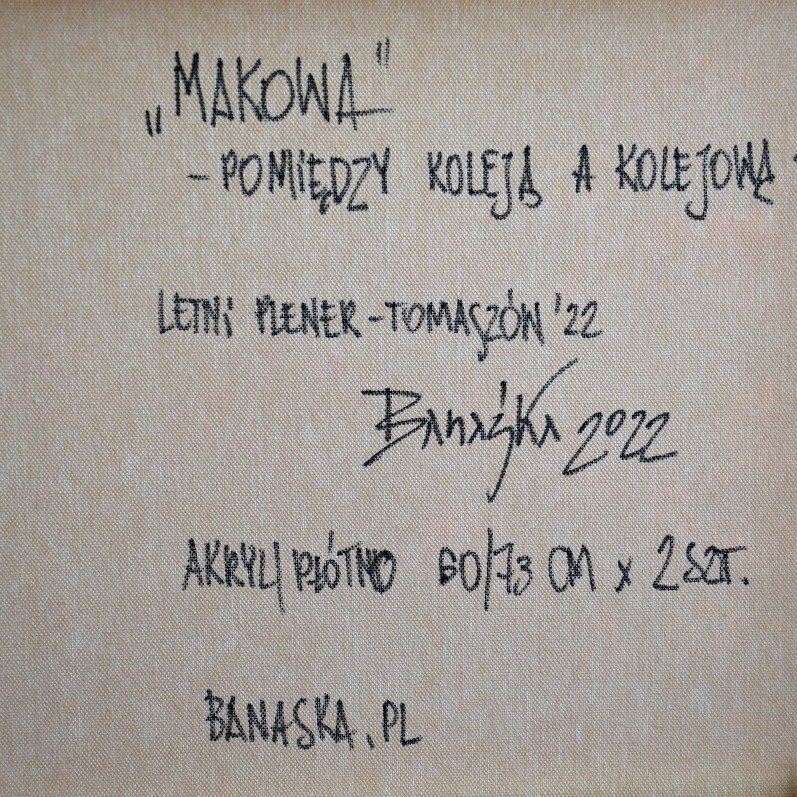 „MAKOWA"
- POMIĘDZY KOLEJĄ A KOLEJOWĄ -
LETNI PLENER - TOMASZÓW '22
Banaśka 2022
AKRYL/PŁÓTNO 60/73 CM x 2 SZT.
BANASKA.PL